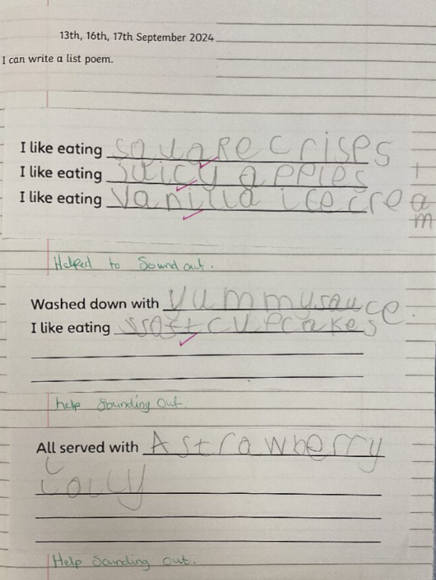 13th, 16th, 17th September 2024
I can write a list poem.
I like eating square crisps
I like eating juicy apples
I like eating vanilla ice cream
Helped to sound out.
Washed down with yummy sauce.
I like eating soft cupcakes
help sounding out.
All served with A strawberry
lolly
Help sounding out.